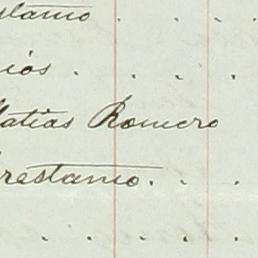 stamo . . .
iós . . . .
atias Romero
restamo . . .
. . . .